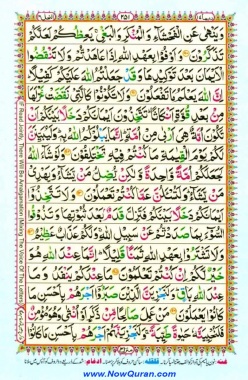 ٢٥١
وَيَنْهٰى عَنِ الْفَحْشَآءِ وَالْمُنْكَرِ وَالْبَغْيِ يَعِظُكُمْ لَعَلَّكُمْ
تَذَكَّرُوْنَ وَاَوْفُوْا بِعَهْدِ اللّٰهِ اِذَا عَاهَدْتُّمْ وَلَا تَنْقُضُوا
الْاَيْمَانَ بَعْدَ تَوْكِيْدِهَا وَقَدْ جَعَلْتُمُ اللّٰهَ عَلَيْكُمْ كَفِيْلًا
اِنَّ اللّٰهَ يَعْلَمُ مَا تَفْعَلُوْنَ وَلَا تَكُوْنُوْا كَالَّتِيْ نَقَضَتْ غَزْلَهَا
مِنْۢ بَعْدِ قُوَّةٍ اَنْكَاثًا تَتَّخِذُوْنَ اَيْمَانَكُمْ دَخَلًۢا بَيْنَكُمْ اَنْ
تَكُوْنَ اُمَّةٌ هِيَ اَرْبٰى مِنْ اُمَّةٍ اِنَّمَا يَبْلُوْكُمُ اللّٰهُ بِهٖ وَلَيُبَيِّنَنَّ
لَكُمْ يَوْمَ الْقِيٰمَةِ مَا كُنْتُمْ فِيْهِ تَخْتَلِفُوْنَ وَلَوْ شَآءَ اللّٰهُ
لَجَعَلَكُمْ اُمَّةً وَّاحِدَةً وَّلٰكِنْ يُّضِلُّ مَنْ يَّشَآءُ وَيَهْدِيْ
مَنْ يَّشَآءُ وَلَتُسْـَٔلُنَّ عَمَّا كُنْتُمْ تَعْمَلُوْنَ وَلَا تَتَّخِذُوْٓا
اَيْمَانَكُمْ دَخَلًۢا بَيْنَكُمْ فَتَزِلَّ قَدَمٌۢ بَعْدَ ثُبُوْتِهَا وَتَذُوْقُوا
السُّوْٓءَ بِمَا صَدَدْتُّمْ عَنْ سَبِيْلِ اللّٰهِ وَلَكُمْ عَذَابٌ عَظِيْمٌ
وَلَا تَشْتَرُوْا بِعَهْدِ اللّٰهِ ثَمَنًا قَلِيْلًا اِنَّمَا عِنْدَ اللّٰهِ هُوَ
خَيْرٌ لَّكُمْ اِنْ كُنْتُمْ تَعْلَمُوْنَ مَا عِنْدَكُمْ يَنْفَدُ وَمَا
عِنْدَ اللّٰهِ بَاقٍ وَلَنَجْزِيَنَّ الَّذِيْنَ صَبَرُوْٓا اَجْرَهُمْ بِاَحْسَنِ مَا
كَانُوْا يَعْمَلُوْنَ مَنْ عَمِلَ صَالِحًا مِّنْ ذَكَرٍ اَوْ اُنْثٰى وَهُوَ مُؤْمِنٌ
فَلَنُحْيِيَنَّهٗ حَيٰوةً طَيِّبَةً وَلَنَجْزِيَنَّهُمْ اَجْرَهُمْ بِاَحْسَنِ مَا كَانُوْا
www.NowQuran.com